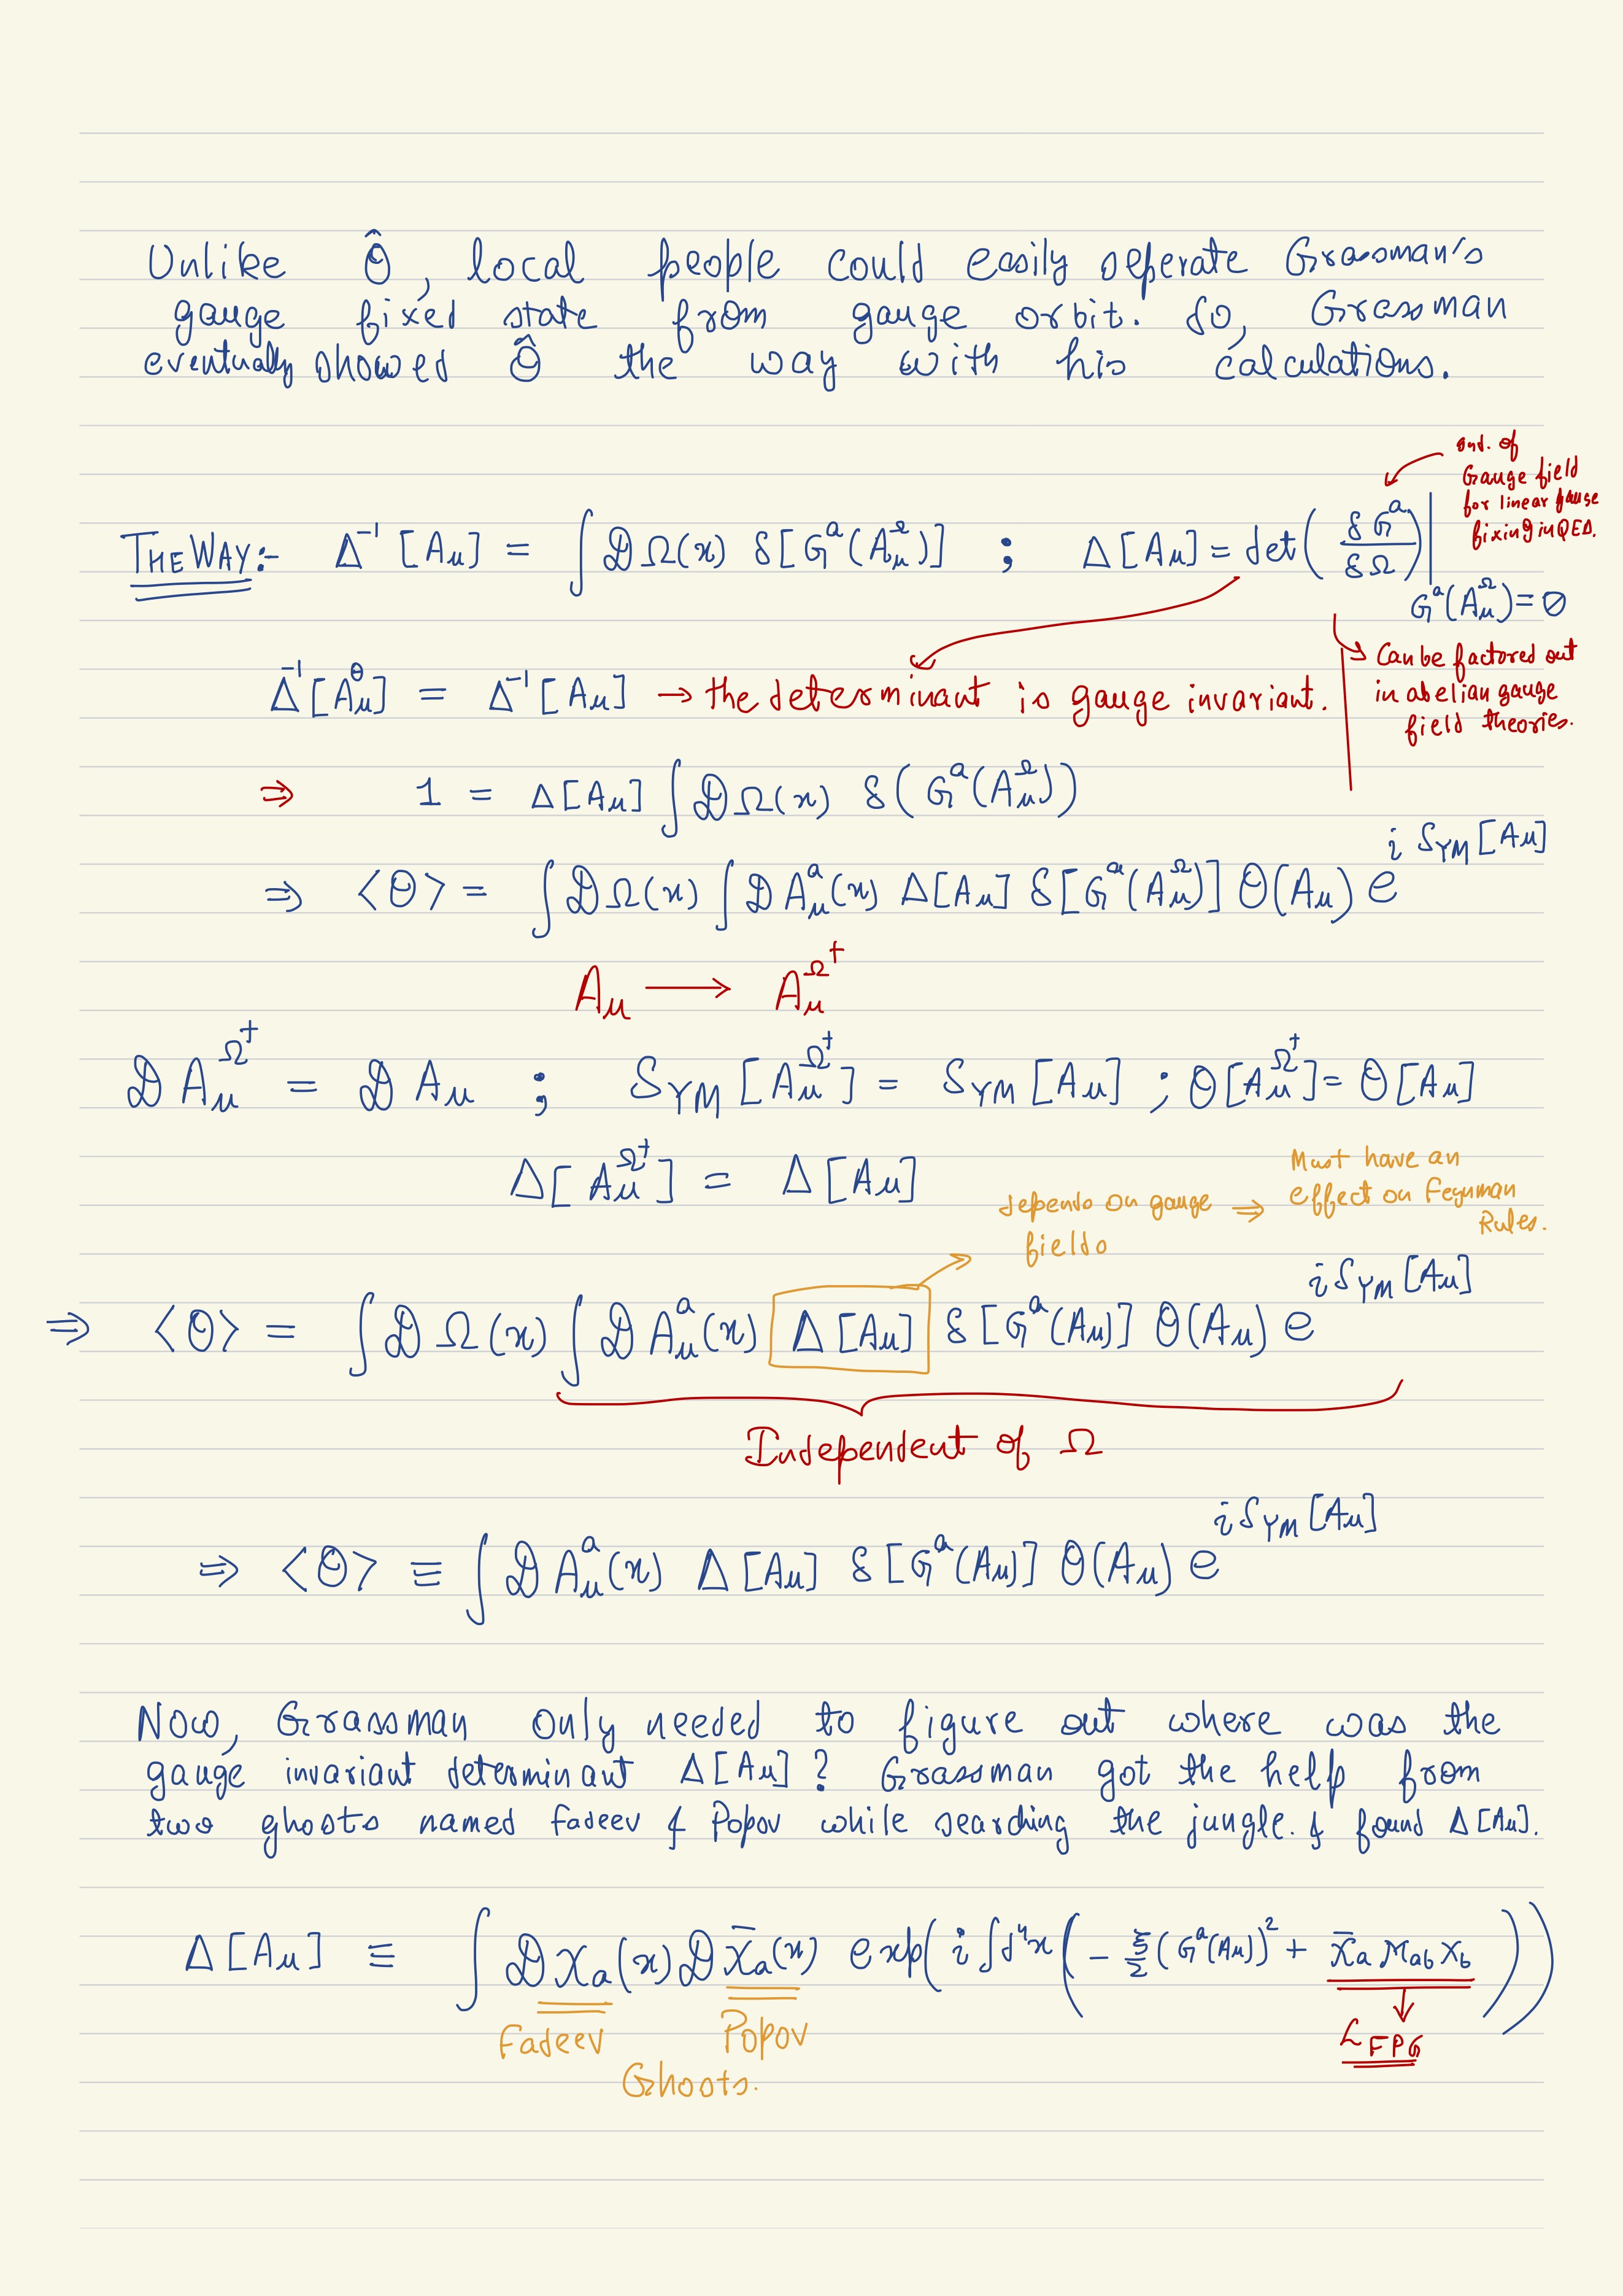 Unlike Ô, local people could easily seperate Grassman's
gauge fixed state from gauge orbit. So, Grassman
eventually showed Ô the way with his calculations.
ind. of
Gauge field
for linear gauge
fixing in QED.
THE WAY:- Δ⁻¹[Aμ] = ∫𝒟Ω(x) δ[Gᵃ(Aμ^Ω)] ; Δ[Aμ] = det(δGᵃ/δΩ)|
Gᵃ(Aμ^Ω)=0
Δ⁻¹[Aμ^θ] = Δ⁻¹[Aμ] → the determinant is gauge invariant.
Can be factored out
in abelian gauge
field theories.
⇒ 1 = Δ[Aμ] ∫𝒟Ω(x) δ(Gᵃ(Aμ^Ω))
⇒ <O> = ∫𝒟Ω(x) ∫𝒟Aμᵃ(x) Δ[Aμ] δ[Gᵃ(Aμ^Ω)] O(Aμ) e^{i S_YM[Aμ]}
Aμ → Aμ^Ω†
𝒟Aμ^Ω† = 𝒟Aμ ; S_YM[Aμ^Ω†] = S_YM[Aμ] ; O[Aμ^Ω†] = O[Aμ]
Δ[Aμ^Ω†] = Δ[Aμ]
depends on gauge fields ⇒ Must have an
effect on Feynman
Rules.
⇒ <O> = ∫𝒟Ω(x) ∫𝒟Aμᵃ(x) Δ[Aμ] δ[Gᵃ(Aμ)] O(Aμ) e^{i S_YM[Aμ]}
Independent of Ω
⇒ <O> ≡ ∫𝒟Aμᵃ(x) Δ[Aμ] δ[Gᵃ(Aμ)] O(Aμ) e^{i S_YM[Aμ]}
Now, Grassman only needed to figure out where was the
gauge invariant determinant Δ[Aμ]? Grassman got the help from
two ghosts named Fadeev & Popov while searching the jungle. & found Δ[Aμ].
Δ[Aμ] ≡ ∫𝒟χₐ(x)𝒟χ̄ₐ(x) exp(i∫d⁴x(-ξ/2(Gᵃ(Aμ))² + χ̄ₐ M_ab χ_b))
Fadeev Popov
Ghosts.
ℒ_FPG